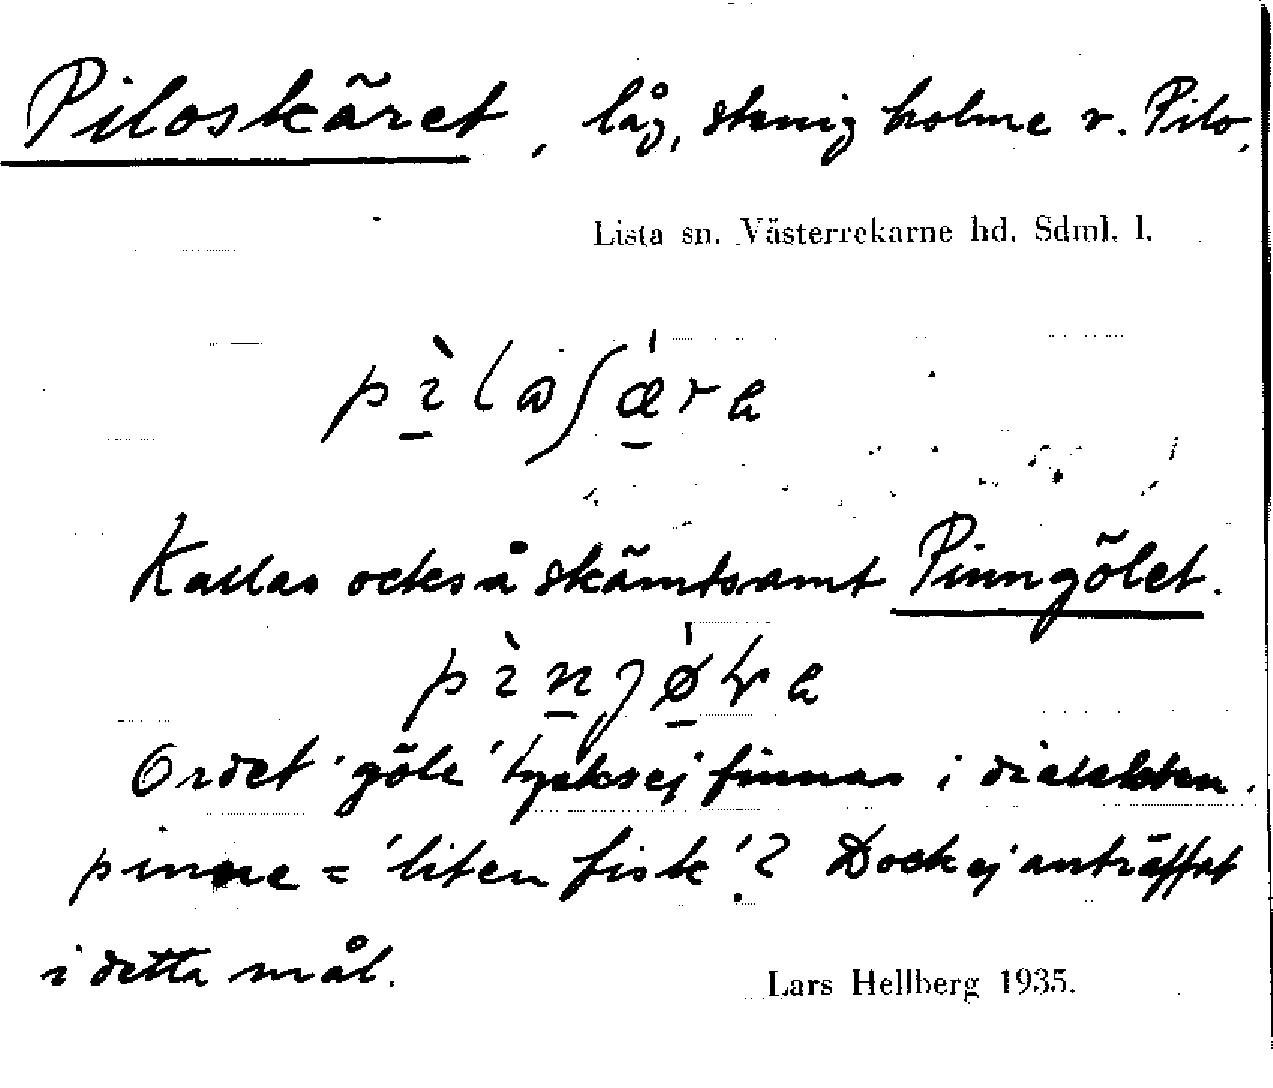 Piloskäret, låg, stenig holme v. Pilo,
Lista sn. Västerrekarne hd. Sdml. l.
Kallas också skämtsamt Pinngölet.
Ordet 'göle' tycks ej finnas i dialekten.
pinne = 'liten fisk'? Dock ej anträffat
i detta mål.
Lars Hellberg 1935.